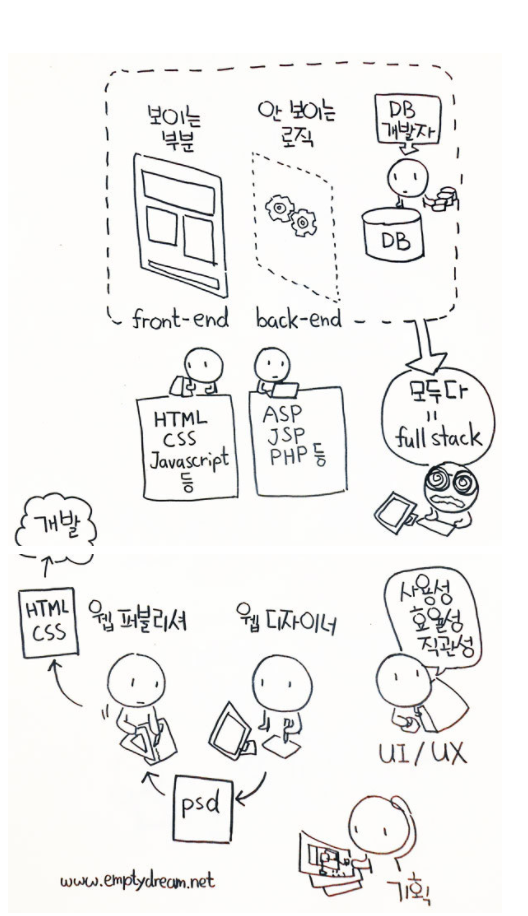 보이는
부분
안 보이는
로직
DB
개발자
DB
front-end
back-end
HTML
CSS
Javascript
등
ASP
JSP
PHP 등
모두 다
=
full stack
개발
HTML
CSS
웹 퍼블리셔
웹 디자이너
사용성
효율성
직관성
UI/UX
psd
www.emptydream.net
기획